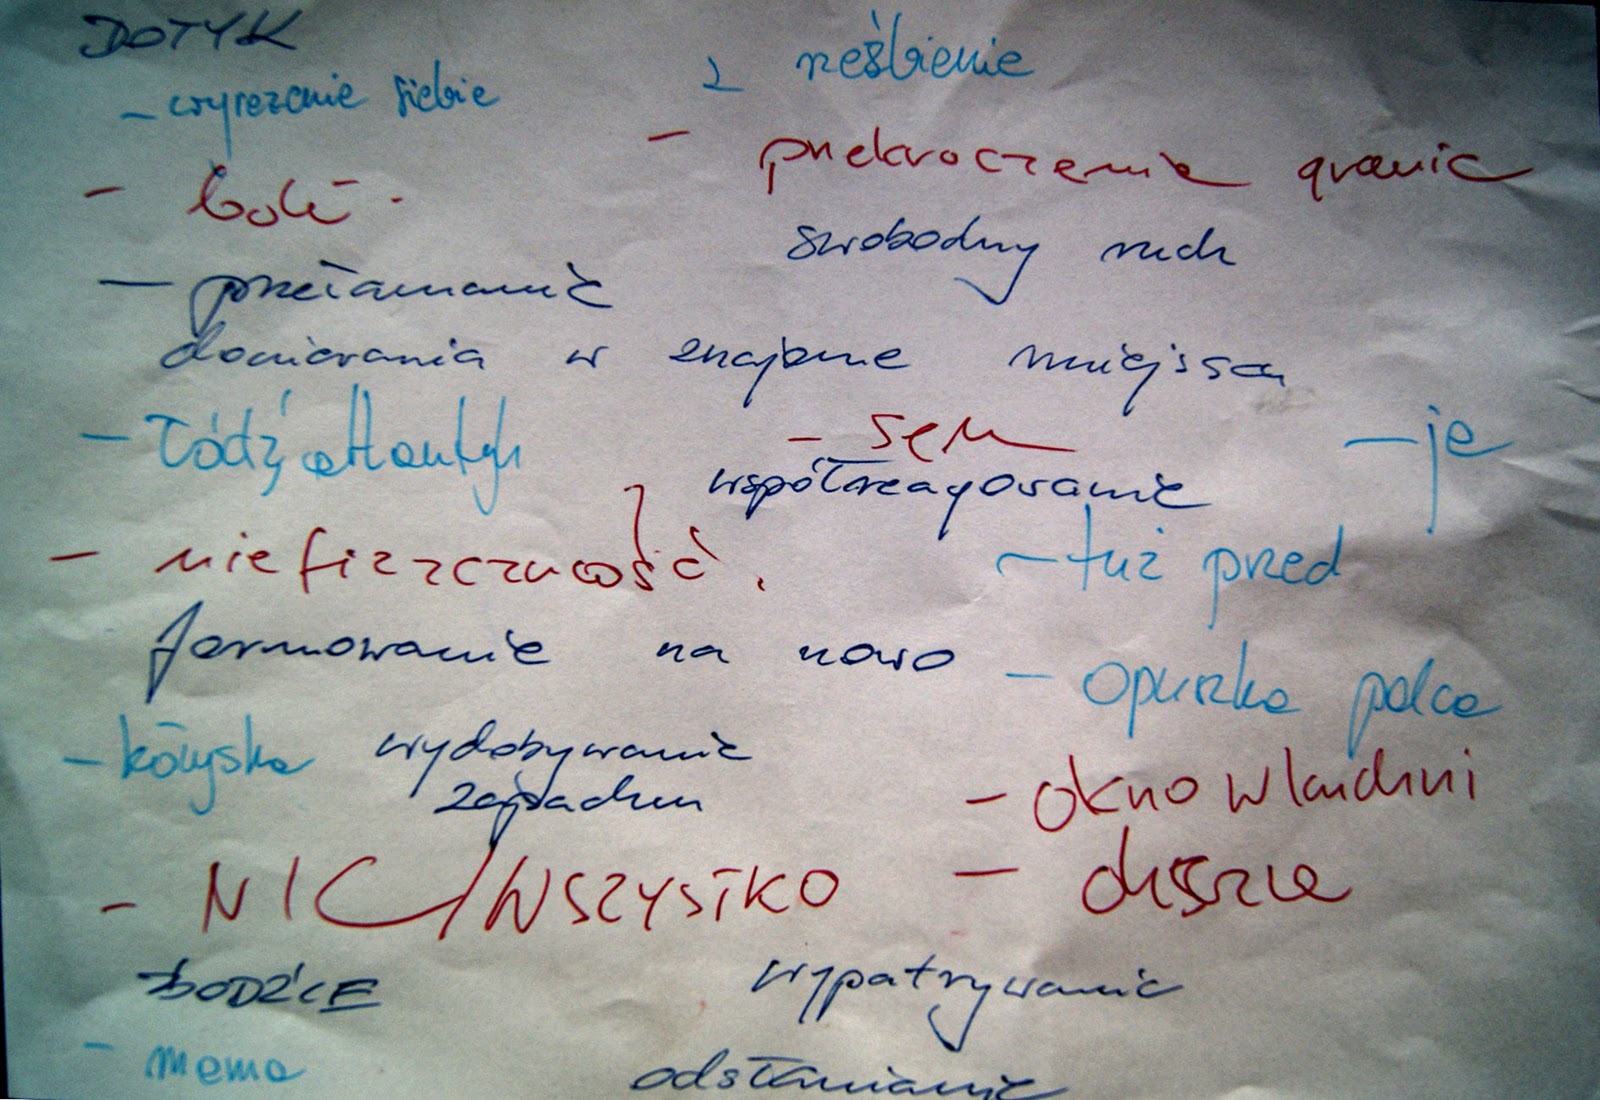 DOTYK
- wyrażanie siebie
- rzeźbienie
- ból
- przekroczenie granic
swobodny ruch
- przełamanie
docierania w znajome miejsca
- łódź
- sęk
- ja
współreagowanie
- niefizyczność.
- tuż przed
formowanie na nowo
- opuszka palca
- kołyska
wydobywanie
zapachu
- okno w kuchni
- NIC/WSZYSTKO
- dusza
BODŹCE
wypatrywanie
- mama
odsłanianie